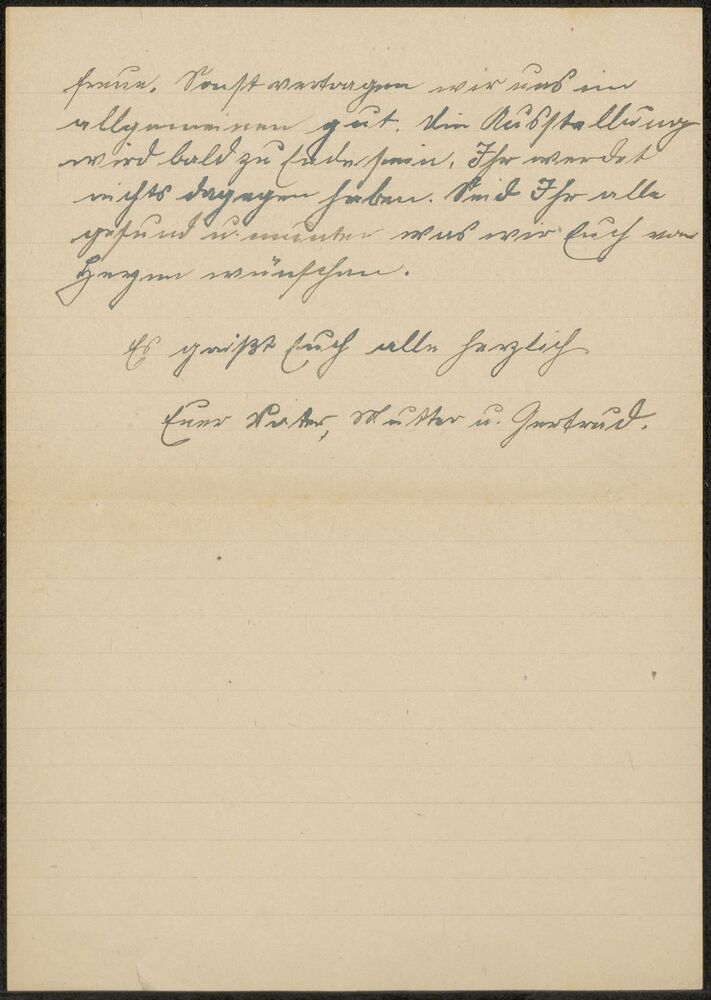 freue. Sonst vertragen wir uns im
allgemeinen gut. Die Ausstellung
wird bald zu Ende sein, Ihr werdet
nichts dagegen haben. Seid Ihr alle
gesund u. munter was wir Euch von
Herzen wünschen.
Es grüßt Euch alle herzlich
Euer Vater, Mutter u. Gertrud.